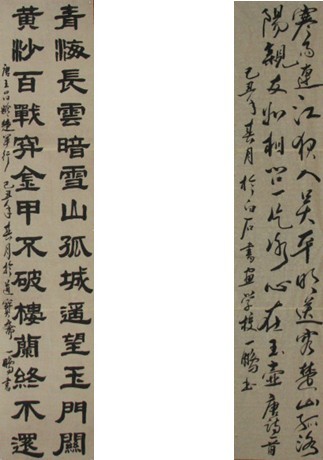 青海長雲暗雪山孤城遥望玉門關
黄沙百戰穿金甲不破樓蘭終不還
唐王昌齡從軍行 己丑年 月於 寶齋 一鵬書
寒雨連江夜入吴平明送客楚山孤洛
陽親友如相問一片冰心在玉壺唐詩一首
己丑年 月於白石書畫學校一鵬書